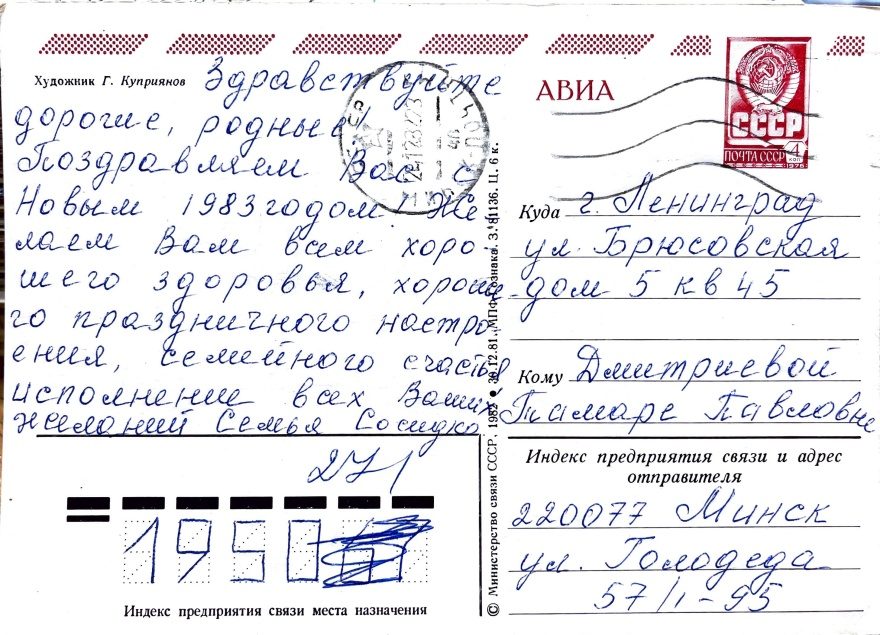 Художник Г. Куприянов
Здравствуйте
дорогие, родные!
Поздравляем Вас с
Новым 1983 годом! Же
лаем Вам всем хоро
шего здоровья, хороше-
го праздничного настро
ения, семейного счастья
исполнение всех Ваших
желаний Семья Сосидко
АВИА
СССР
ПОЧТА СССР 4 коп
Куда г. Ленинград
ул. Брюсовская
дом 5 кв 45
Кому Дмитриевой
Тамаре Павловне
Индекс предприятия связи и адрес
отправителя
220077 Минск
ул. Голодеда
57/1-95
© Министерство связи СССР, 1982 • 30.12.81. МПФ Гознака. З. 81136. Ц. 6 к.
271
1950
Индекс предприятия связи места назначения